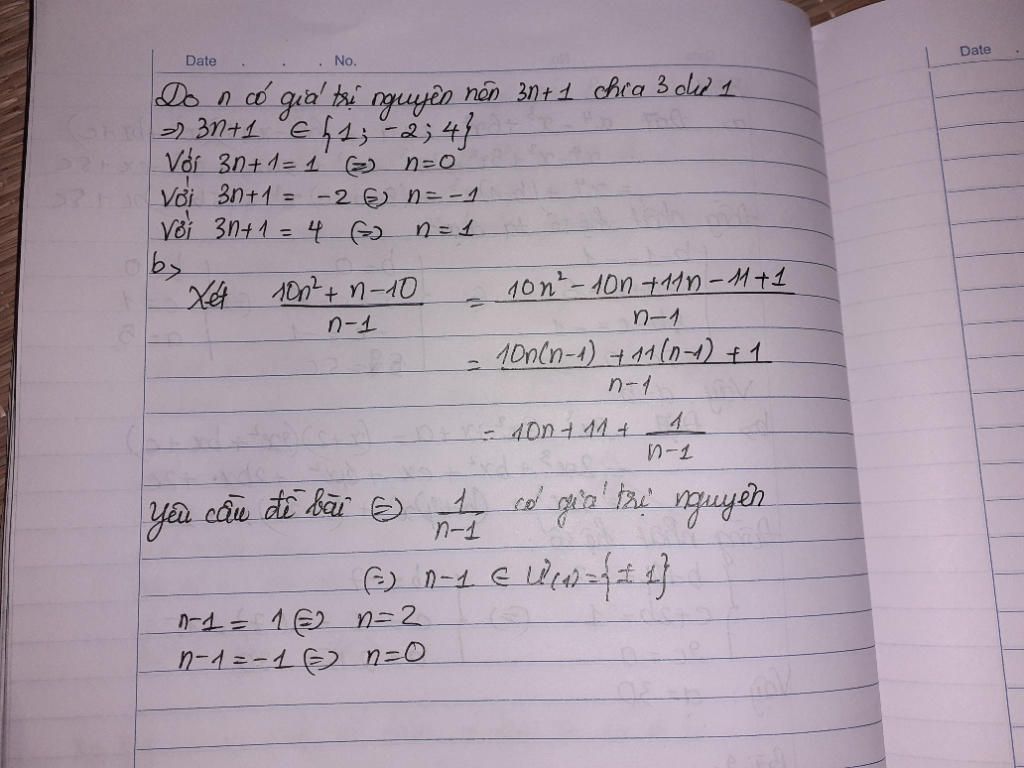 Date . . . No.
Date .
Do n có giá trị nguyên nên 3n+1 chia 3 dư 1
=> 3n+1 ∈ {1; -2; 4}
Với 3n+1 = 1 <=> n=0
Với 3n+1 = -2 <=> n=-1
Với 3n+1 = 4 <=> n=1
b>
Xét (10n² + n - 10)/(n-1) = (10n² - 10n + 11n - 11 + 1)/(n-1)
= (10n(n-1) + 11(n-1) + 1)/(n-1)
= 10n + 11 + 1/(n-1)
Yêu cầu đề bài <=> 1/(n-1) có giá trị nguyên
<=> n-1 ∈ Ư(1) = {± 1}
n-1 = 1 <=> n=2
n-1 = -1 <=> n=0